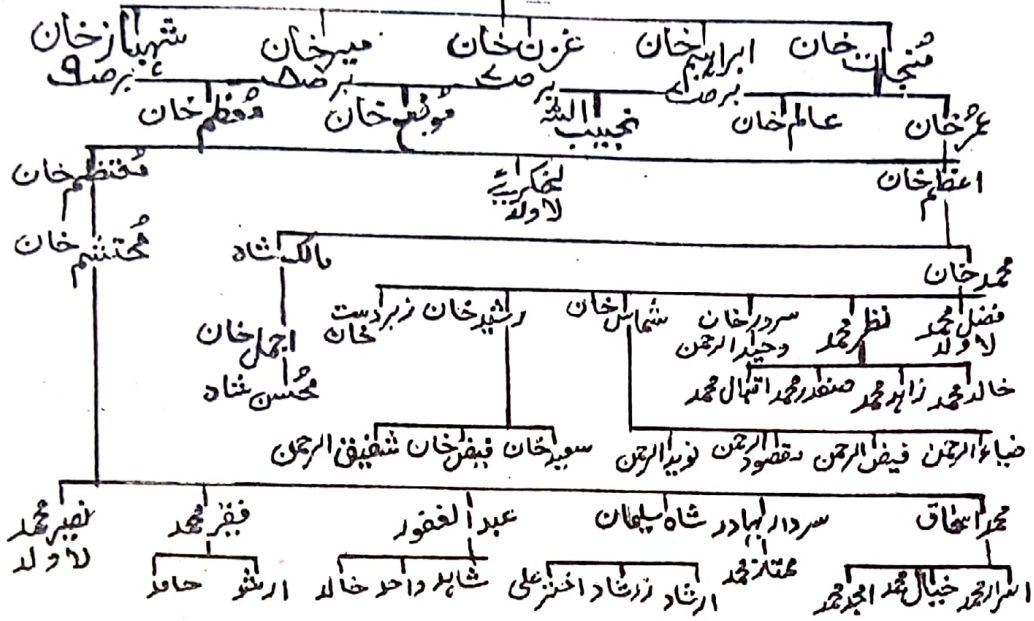 منجات خان ابراہیم خان غزن خان میر خان شہباز خان
برصـ۷ برصـ۸ برصـ۹
عمر خان عالم خان نجیب اللہ خان معظم خان
اعظم خان لاولد مقتظم خان
محمد خان مالک شاہ محتشم خان
فضل محمد لاولد نظر محمد سرور خان وحید الرحمن شماس خان رشید خان زبردست خان
اجمل خان
خالد محمد زاہد محمد صفدر محمد اقبال محمد
محسن شاہ
ضیاء الرحمن فیض الرحمن مقصود الرحمن نوید الرحمن سعید خان فیض خان شفیق الرحمن
محمد اسحاق سردار بہادر شاہ سلیمان عبد الغفور فقیر محمد نصیر محمد لاولد
ممتاز محمد
اسرار محمد خیال محمد امجد محمد ارشاد زرشاد اختر علی شاہد واحد خالد ارشد حامد